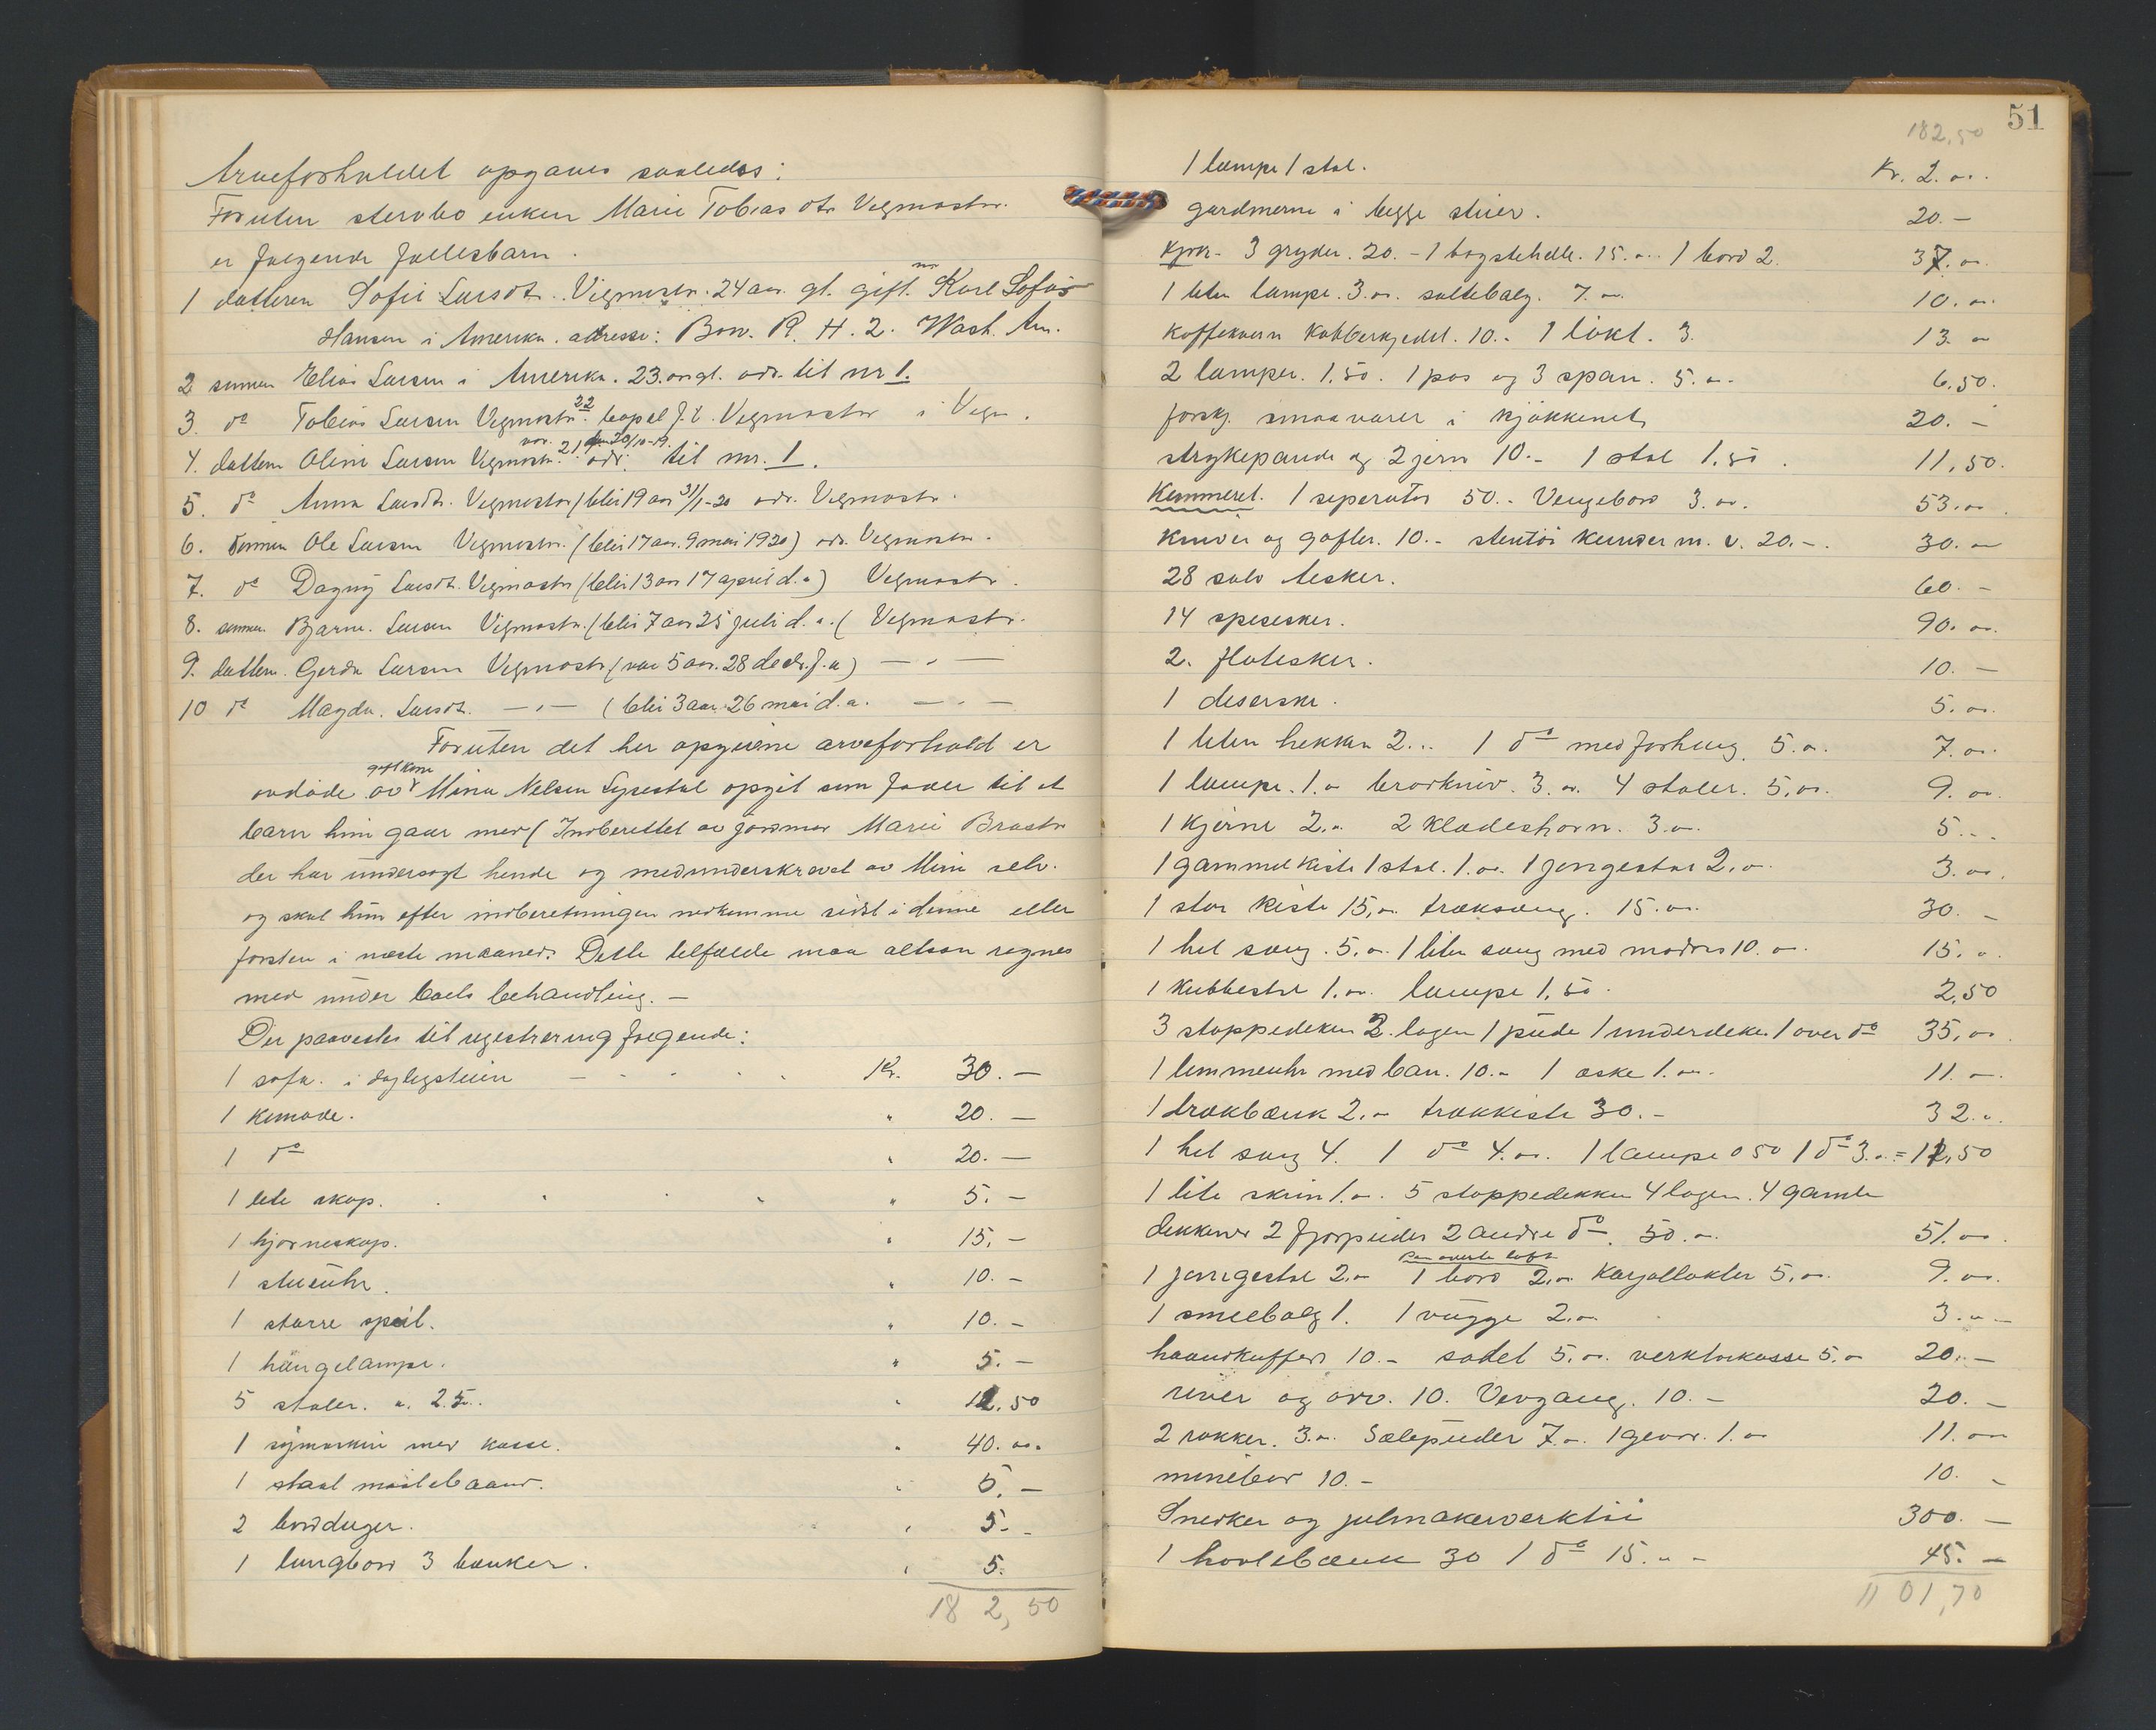 Arveforholdet opgaves saaledes:
Foruten stervbo enken Marie Tobias dtr Vegmostr.
er følgende fællesbarn.
1 datteren Sofie Larsdt. Vigmostr. 24 aar. gl. gift. m Karl Sofus
Hansen i Amerika. adresse: Bow. R. H. 2. Wash. Am.
2 sønnen Elias Larsen i Amerika. 23. aar gl. adr. til nr 1.
3. do Tobias Larsen Vegmostr. 22 bopæl f. t. Vegmostr i Vegm.
4. datteren Oline Larsen Vegmostr. var 21 den 20/10-19. adr. til nr. 1.
5. do Anna Larsdt. Vegmostr (blir 19 aar 31/1-20 adr. Vegmostr.
6. Sønnen Ole Larsen Vegmostr. (blir 17 aar. 9 mai 1920) adr. Vegmostr.
7. do Dagny Larsdt. Vegmostr (blir 13 aar 17 april d.a) Vegmostr.
8. sønnen Bjarne. Larsen Vigmostr. (blir 7 aar 25 juli d. a. ( Vegmostr.
9. datteren. Gerda Larsen Vegmostr (var 5 aar. 28 decbr. f.a) — " —
10 do Magda. Larsdt. — " — (blir 3 aar 26 mai d. a. — " —
Foruten det her opgivne arveforhold er
avdøde av ugift kone Mina Nelsen Lysestøl opgit som fader til et
barn hun gaar med (Indberettet av jormor Marie Brastr
der har undersøgt hende og medunderskrevet av Mina selv.
og skal hun efter indberetningen nedkomme sidst i denne eller
første i næste maaned. Dette tilfælde maa altsaa regnes
med under boets behandling. —
Der paavistes til registrering følgende:
1 sofa. i dagligstuen Kr. 30. —
1 komode. " 20. —
1 do " 20. —
1 lite skap. " 5. —
1 hjørneskap. " 15. —
1 stueuhr. " 10. —
1 større speil. " 10. —
1 hængelampe. " 5. —
5 stoler. a. 2.50. " 12.50
1 symaskin med kasse. " 40. "
1 staal maalebaand. " 5. —
2 bordduger. " 5. -
1 langbord 3 bænker. " 5.
182,50
51
182,50
1 lampe 1 stol. Kr. 2. "
gardinerne i begge stuer. 20. —
Kjøk. 3 gryder. 20. - 1 bagstehelle. 15. " 1 bord 2. 37. "
1 liten lampe. 3. " saltebalg. 7. " 10. "
Koffekværn kobberkjedel. 10. - 1 løkt. 3. 13. "
2 lamper. 1,50. 1 pøs og 3 span. 5. " 6,50.
forskj. smaavarer i kjøkkenet 20. -
strykepande og 2 jern 10. - 1 stol 1,50. 11,50.
Kammeret. 1 seperator 50. - Vengebord 3. " 53. "
Kniver og gafler. 10. - stentøi kander m. v. 20. -. 30. "
28 sølv tesker. 60. -
14 spisesker. 90. "
2. fløtesker. 10. —
1 deserske. 5. "
1 liten hekken 2. " 1 do med forheng. 5. " 7. "
1 lampe. 1. " brødkniv. 3. " 4 stoler. 5. " 9. "
1 kjerne 2. " 2 klædeshorn. 3. " 5. "
1 gammel kiste 1 stol. 1. " 1 jengestol 2. " 3. "
1 stor kiste 15. " træksæng. 15. " 30. —
1 hel sæng. 5. " 1 liten sæng med madras 10. " 15. "
1 kubbestol 1. " lampe 1,50. 2,50
3 stoppedeken 2 lagen 1 pude 1 underdeke 1 over do 35. "
1 lommeuhr med bær. 10. " 1 æske 1. " 11. "
1 drækbænk 2. " trækkiste 30. - 32. "
1 hel sæng 4. 1 do 4. " 1 lampe 0 50 1 do 3. " = 11,50
1 lite skrin 1. " 5 stoppedekken 4 lagen. 4 gamle
dekkener 2 fjørputer 2 andre do. 50. " 51. "
1 jengestol 2. " Paa øverste loft 1 bord 2. " Karjollokter 5. " 9. "
1 smeebalg 1. 1 vugge 2. " 3. "
haandkuffert 10. - sadel 5. " verktøikasse 5. " 20. —
river og orv. 10. Vevgang. 10. - 20. —
2 rokker. 3. " Sælepuder 7. " 1 gevær. 1. " 11. "
minebor 10. - 10. -
Snedker og julmakerverktøi 300. —
1 høvlebænk 30 1 do 15. " - 45. —
1101,70